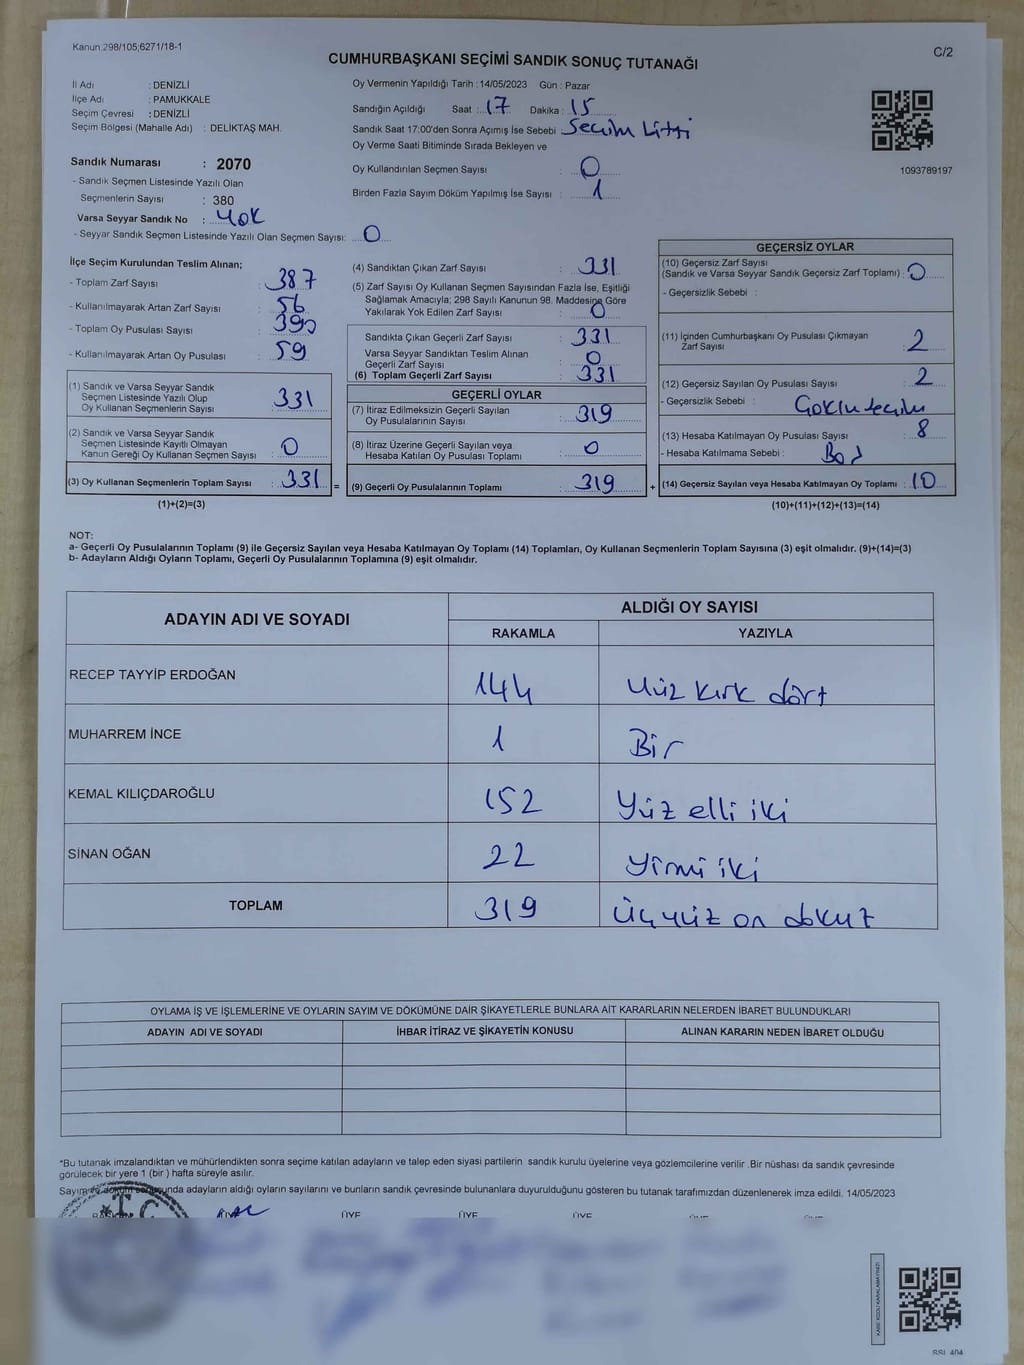 Kanun.298/105;6271/18-1
C/2
CUMHURBAŞKANI SEÇİMİ SANDIK SONUÇ TUTANAĞI
İl Adı : DENİZLİ
İlçe Adı : PAMUKKALE
Seçim Çevresi : DENİZLİ
Seçim Bölgesi (Mahalle Adı) : DELİKTAŞ MAH.
Oy Vermenin Yapıldığı Tarih : 14/05/2023 Gün : Pazar
Sandığın Açıldığı Saat : 17 Dakika : 15
Sandık Saat 17:00'den Sonra Açımış İse Sebebi Seçim bitti
Oy Verme Saati Bitiminde Sırada Bekleyen ve
Oy Kullandırılan Seçmen Sayısı : 0
Birden Fazla Sayım Döküm Yapılmış İse Sayısı : 1
1093789197
Sandık Numarası : 2070
- Sandık Seçmen Listesinde Yazılı Olan
Seçmenlerin Sayısı : 380
Varsa Seyyar Sandık No : YOK
- Seyyar Sandık Seçmen Listesinde Yazılı Olan Seçmen Sayısı: 0
İlçe Seçim Kurulundan Teslim Alınan;
- Toplam Zarf Sayısı : 387
- Kullanılmayarak Artan Zarf Sayısı : 56
- Toplam Oy Pusulası Sayısı : 390
- Kullanılmayarak Artan Oy Pusulası : 59
(1) Sandık ve Varsa Seyyar Sandık
Seçmen Listesinde Yazılı Olup
Oy Kullanan Seçmenlerin Sayısı : 331
(2) Sandık ve Varsa Seyyar Sandık
Seçmen Listesinde Kayıtlı Olmayan
Kanun Gereği Oy Kullanan Seçmen Sayısı : 0
(3) Oy Kullanan Seçmenlerin Toplam Sayısı : 331 =
(1)+(2)=(3)
(4) Sandıktan Çıkan Zarf Sayısı : 331
(5) Zarf Sayısı Oy Kullanan Seçmen Sayısından Fazla İse, Eşitliği
Sağlamak Amacıyla; 298 Sayılı Kanunun 98. Maddesine Göre
Yakılarak Yok Edilen Zarf Sayısı : 0
Sandıkta Çıkan Geçerli Zarf Sayısı : 331
Varsa Seyyar Sandıktan Teslim Alınan
Geçerli Zarf Sayısı : 0
(6) Toplam Geçerli Zarf Sayısı : 331
GEÇERLİ OYLAR
(7) İtiraz Edilmeksizin Geçerli Sayılan
Oy Pusulalarının Sayısı : 319
(8) İtiraz Üzerine Geçerli Sayılan veya
Hesaba Katılan Oy Pusulası Toplamı : 0
(9) Geçerli Oy Pusulalarının Toplamı : 319 +
GEÇERSİZ OYLAR
(10) Geçersiz Zarf Sayısı
(Sandık ve Varsa Seyyar Sandık Geçersiz Zarf Toplamı) : 0
- Geçersizlik Sebebi :
(11) İçinden Cumhurbaşkanı Oy Pusulası Çıkmayan
Zarf Sayısı : 2
(12) Geçersiz Sayılan Oy Pusulası Sayısı : 2
- Geçersizlik Sebebi : Çoklu seçim
(13) Hesaba Katılmayan Oy Pusulası Sayısı : 8
- Hesaba Katılmama Sebebi : Boş
(14) Geçersiz Sayılan veya Hesaba Katılmayan Oy Toplamı : 10
(10)+(11)+(12)+(13)=(14)
NOT:
a- Geçerli Oy Pusulalarının Toplamı (9) ile Geçersiz Sayılan veya Hesaba Katılmayan Oy Toplamı (14) Toplamları, Oy Kullanan Seçmenlerin Toplam Sayısına (3) eşit olmalıdır. (9)+(14)=(3)
b- Adayların Aldığı Oyların Toplamı, Geçerli Oy Pusulalarının Toplamına (9) eşit olmalıdır.
ADAYIN ADI VE SOYADI
ALDIĞI OY SAYISI
RAKAMLA YAZIYLA
RECEP TAYYİP ERDOĞAN 144 Yüz kırk dört
MUHARREM İNCE 1 Bir
KEMAL KILIÇDAROĞLU 152 Yüz elli iki
SİNAN OĞAN 22 Yirmi iki
TOPLAM 319 Üçyüz on dokuz
OYLAMA İŞ VE İŞLEMLERİNE VE OYLARIN SAYIM VE DÖKÜMÜNE DAİR ŞİKAYETLERLE BUNLARA AİT KARARLARIN NELERDEN İBARET BULUNDUKLARI
ADAYIN ADI VE SOYADI İHBAR İTİRAZ VE ŞİKAYETİN KONUSU ALINAN KARARIN NEDEN İBARET OLDUĞU
*Bu tutanak imzalandıktan ve mühürlendikten sonra seçime katılan adayların ve talep eden siyasi partilerin sandık kurulu üyelerine veya gözlemcilerine verilir .Bir nüshası da sandık çevresinde
görülecek bir yere 1 (bir ) hafta süreyle asılır.
Sayım ve döküm sonunda adayların aldığı oyların sayılarını ve bunların sandık çevresinde bulunanlara duyurulduğunu gösteren bu tutanak tarafımızdan düzenlenerek imza edildi. 14/05/2023
T.C.
ÜYE ÜYE ÜYE